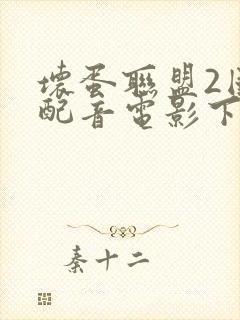 壞蛋聯盟2國
配音電影下
秦十二